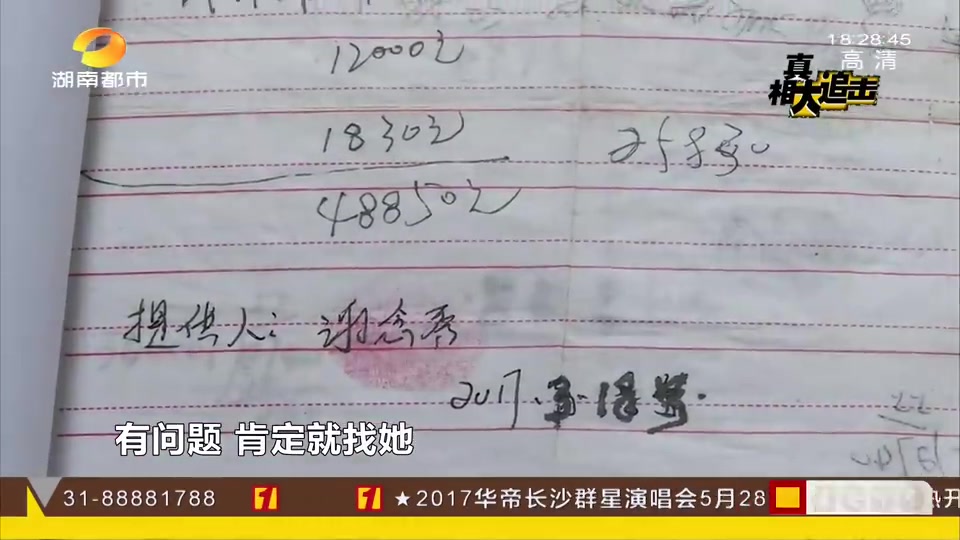 湖南都市
18:28:45
高清
真相大追击
12000元
1830元
48850元
提供人：谢念秀
2017.
有问题 肯定就找她
31-88881788
★2017华帝长沙群星演唱会5月28
热开